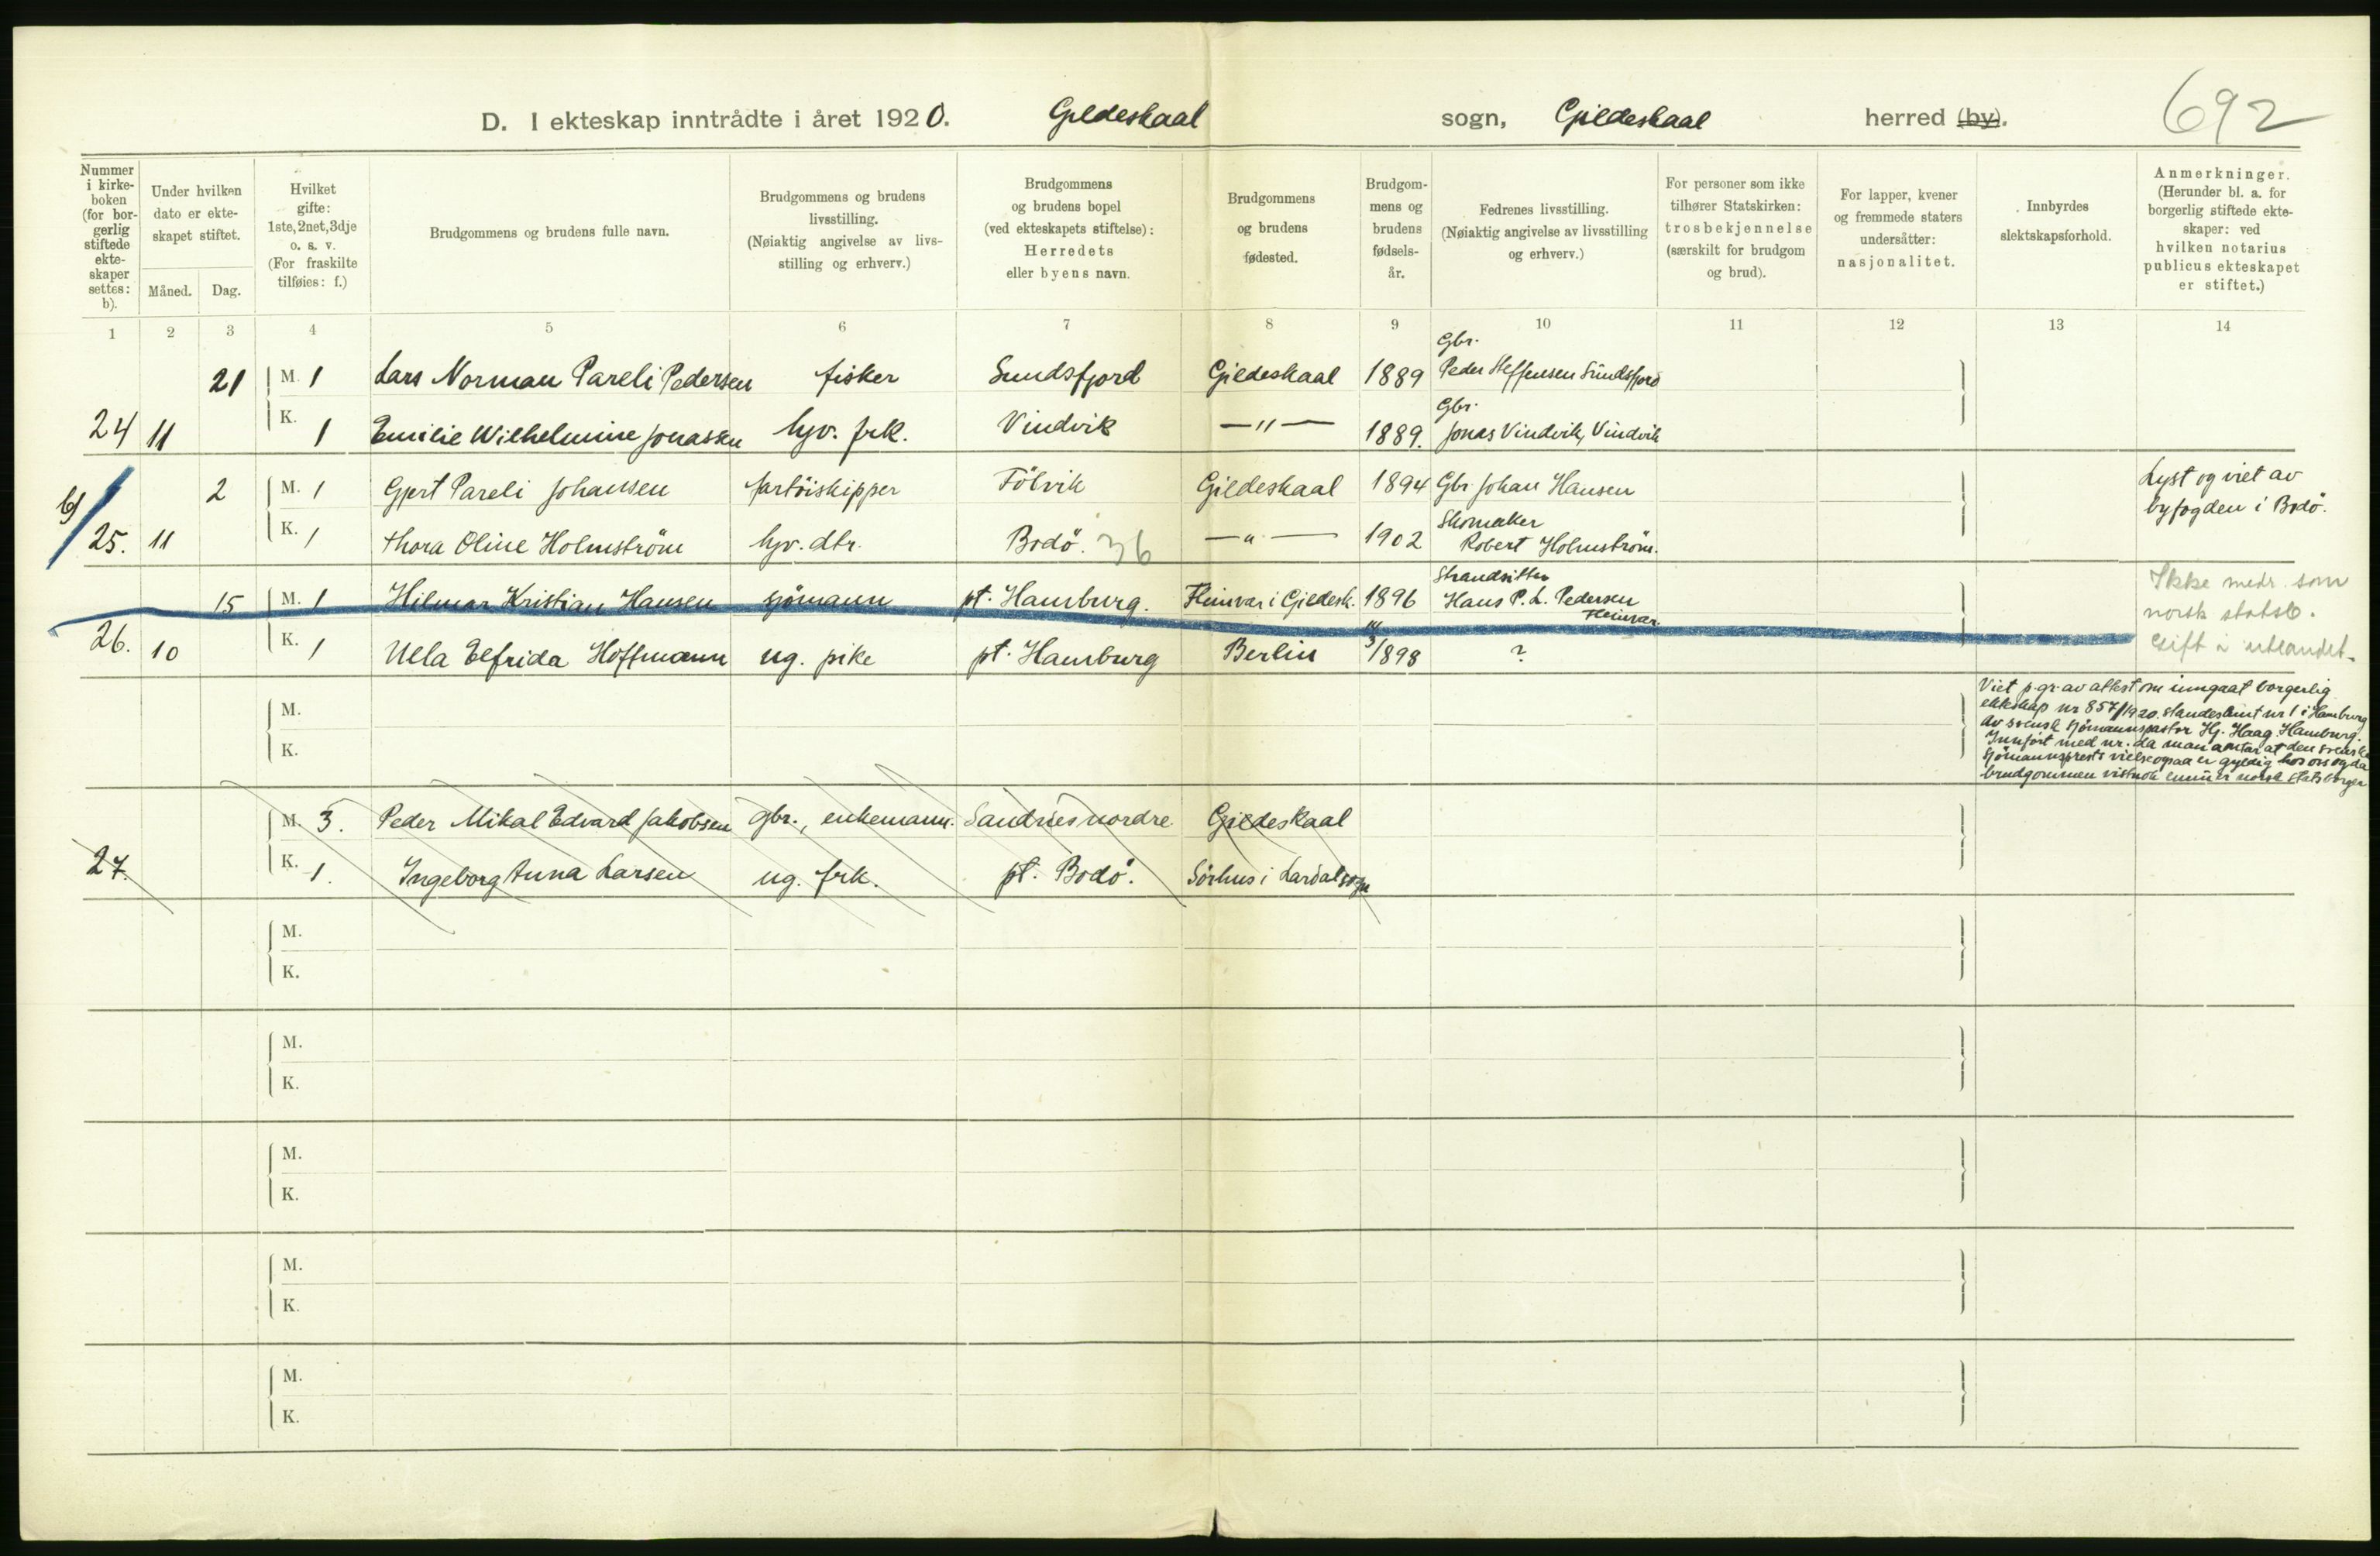 692
D. I ekteskap inntrådte i året 1920. Gildeskaal sogn, Gildeskaal herred (by).
Nummer i kirke- boken (for bor- gerlig stiftede ekte- skaper settes: b).
Under hvilken dato er ekte- skapet stiftet.
Måned. Dag.
Hvilket gifte: 1ste, 2net, 3dje o. s. v. (For fraskilte tilføies: f.)
Brudgommens og brudens fulle navn.
Brudgommens og brudens livsstilling. (Nøiaktig angivelse av livs- stilling og erhverv.)
Brudgommens og brudens bopel (ved ekteskapets stiftelse): Herredets eller byens navn.
Brudgommens og brudens fødested.
Brudgom- mens og brudens fødsels- år.
Fedrenes livsstilling. (Nøiaktig angivelse av livsstilling og erhverv.)
For personer som ikke tilhører Statskirken: trosbekjennelse (særskilt for brudgom og brud).
For lapper, kvener og fremmede staters undersåtter: nasjonalitet.
Innbyrdes slektskapsforhold.
Anmerkninger. (Herunder bl. a. for borgerlig stiftede ekte- skaper: ved hvilken notarius publicus ekteskapet er stiftet.)
1 2 3 4 5 6 7 8 9 10 11 12 13 14
Gbr.
21 M. 1 Lars Norman Pareli Pedersen fisker Sundsfjord Gildeskaal 1889 Peder Steffensen Sundsfjord
Gbr.
24 11 K. 1 Emilie Wilhelmine Jonassen hjv. frk. Vindvik —"— 1889. Jonas Vindvik, Vindvik
b/ 2 M. 1 Gjert Pareli Johansen fartöiskipper Fölvik Gildeskaal 1894 Gbr Johan Hansen Lyst og viet av byfogden i Bodö.
Skomaker
25. 11 K. 1 Thora Oline Holmström hjv. dtr. Bodö. 36 —"— 1902 Robert Holmström.
Strandsitter
15 M. 1 Hilmar Kristian Hansen sjömann pt. Hamburg. Fleinvær i Gildesk. 1896 Hans P. L. Pedersen
Fleinvær
Ikke medr. som
norsk statsb.
Gift i utlandet.
26. 10 K. 1 Ulla Elfrida Hoffmann ug. pike pt. Hamburg Berlin 1898 ?
M.
K.
Viet p. gr. av attest om inngaat borgerlig
ekteskap nr 857/1920. Standesamt nr 1 i Hamburg
av svensk sjömannspastor Hj. Haag Hamburg.
Innfört med nr. da man antar at den svenske
sjömannsprests vielse ogsaa er gyldig hos oss og da
brudgommen vistnok ennu er norsk statsborger
M. 3. Peder Mikal Edvard Jakobsen gbr., enkemann. Sandnes nordre Gildeskaal
27. K. 1. Ingeborg Anna Larsen ug. frk. pt. Bodö. Sörhus i Lardal sogn
M.
K.
M.
K.
M.
K.
M.
K.
M.
K.